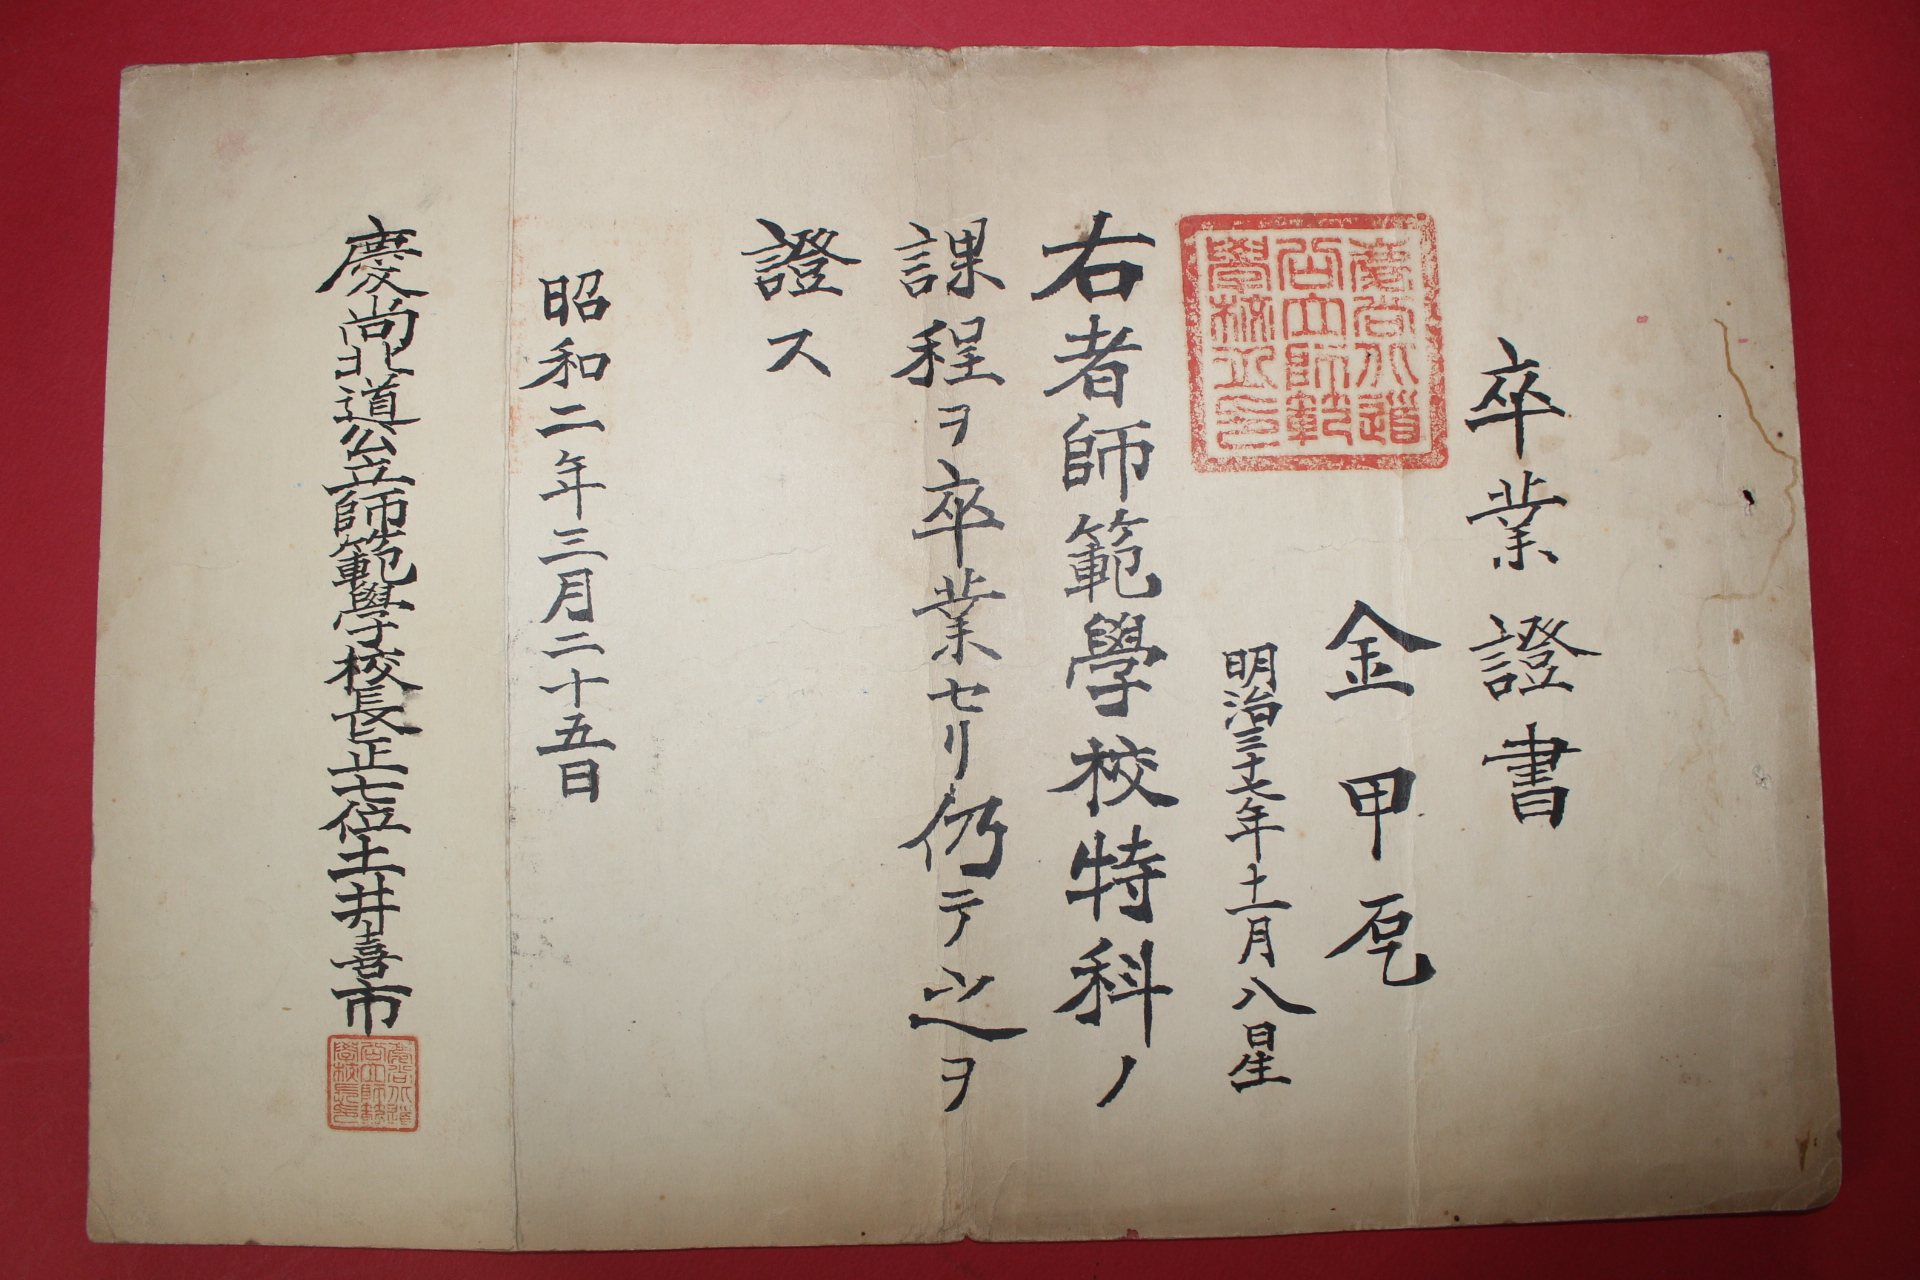 卒業證書
金甲乭
明治三十七年十一月八日生
慶尚北道
公立師範
學校之印
右者師範學校特科ノ
課程ヲ卒業セリ仍テ之ヲ
證ス
昭和二年三月二十五日
慶尚北道公立師範學校長正七位土井喜市
慶尚北道
公立師範
學校長印